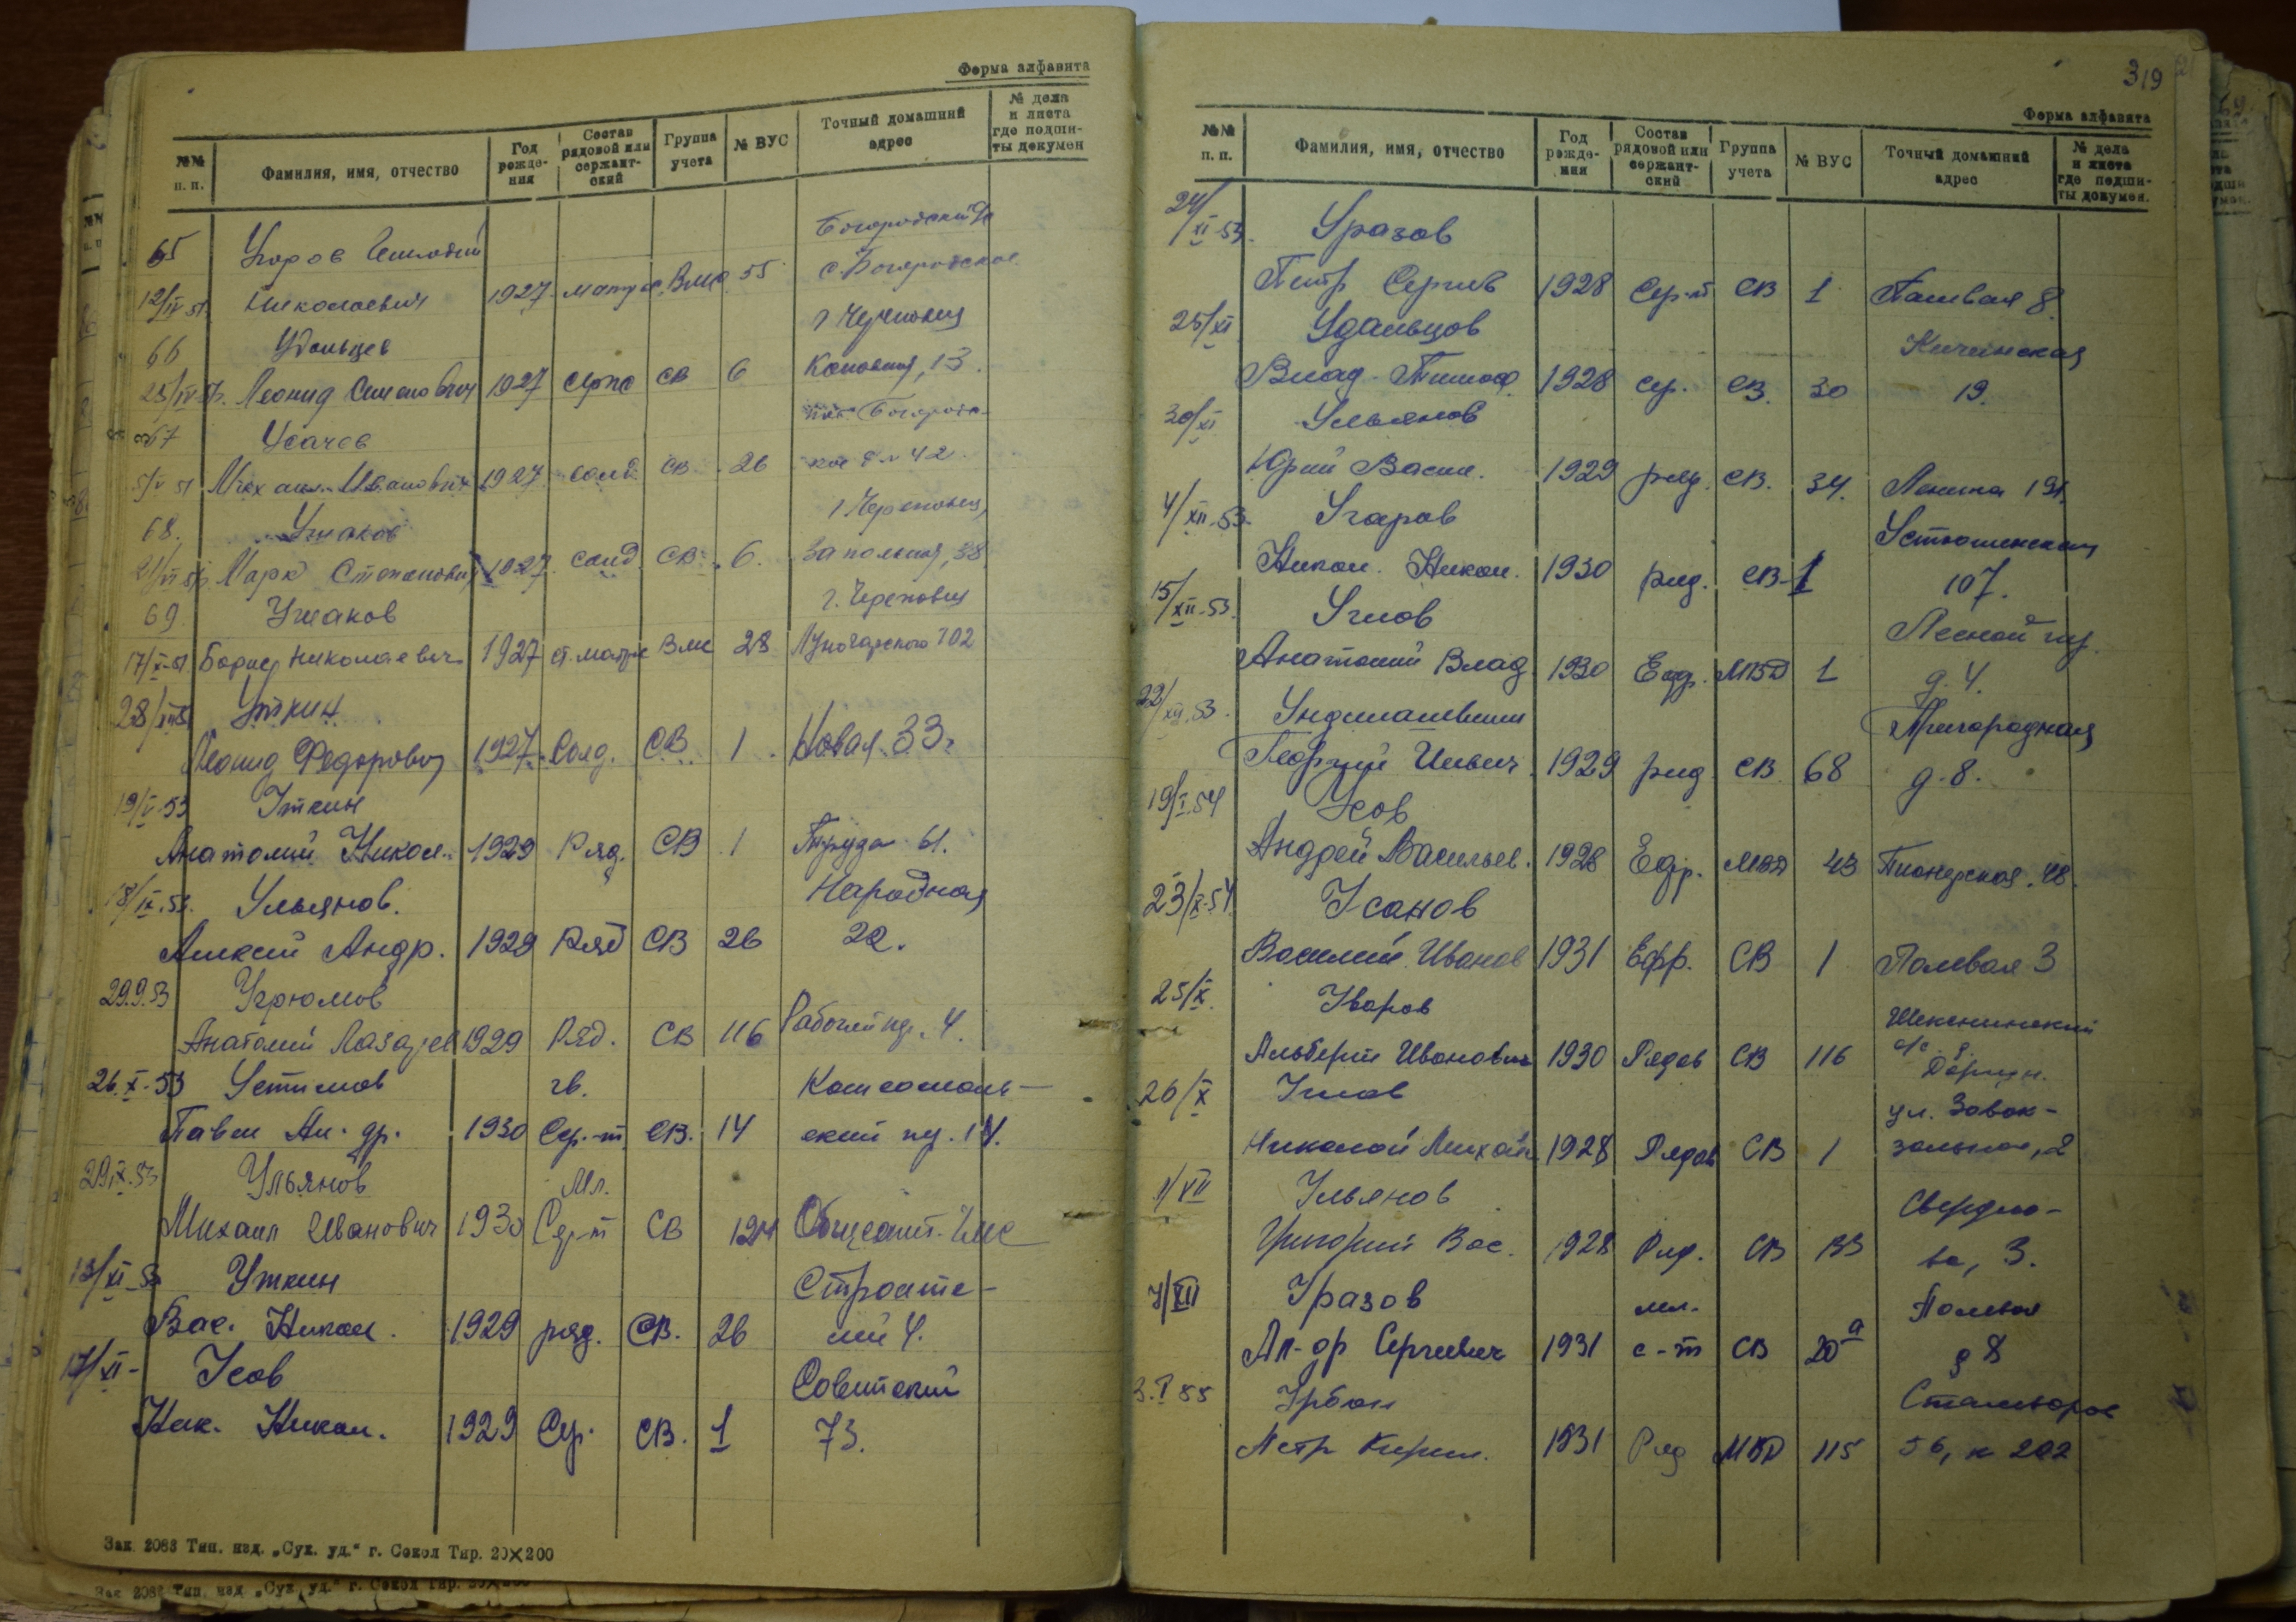 Форма алфавита
№№ п. п.
Фамилия, имя, отчество
Год рожде-ния
Состав рядовой или сержант-ский
Группа учета
№ ВУС
Точный домашний адрес
№ дела и листа где подши-ты докумен
65 Угаров
12/IV 51. Николаевич 1927 ВМС 55 с. Богородское
66 Удальцев г Череповец
25/IV Леонид Семенович 1927 СВ 6 13.
67 Усачев
5/V 51 Михаил Иванович 1927 солд СВ 26 42
68. Ушаков г Череповец,
Марк Степанович 1927 солд. СВ 6. Запольная, 38
69. Ушаков г. Череповец
17/X-51. Борис Николаевич 1927 ст. матрос ВМС 28 Луначарского 102
28/ Уткин
Леонид Федорович 1927 Солд. СВ 1 Новая 33.
19/V-53 Уткин
Анатолий Никол. 1929 Ряд. СВ 1 Труда 61.
18/IX.53. Ульянов. Народная
Алексей Андр. 1929 Ряд СВ 26 22.
29.9.53 Угрюмов
Анатолий Лазарев 1929 Ряд. СВ 116 Рабочий пр. 4.
26.X-53 Устимов гв. Комсомоль-
Павел Ал-др. 1930 Сер-т СВ. 14 ский пр. 14.
29.X.53 Ульянов Мл.
Михаил Иванович 1930 Сер-т СВ 124 Общежит. ЧМС
13/XI-53 Уткин Строите-
Вас. Никол. 1929 ряд. СВ. 26 лей 4.
17/XI- Усов Советский
Ник. Никол. 1929 Сер. СВ. 1 73.
Зак. 2086 Тип. изд. „Сух. уд.“ г. Сокол Тир. 20×200
Зак 2086 Тип. изд „Сух. уд.“ г. Сокол Тир.
319
Форма алфавита
№№ п. п.
Фамилия, имя, отчество
Год рожде-ния
Состав рядовой или сержант-ский
Группа учета
№ ВУС
Точный домашний адрес
№ дела и листа где подши-ты докумен.
24/XI-53. Уразов
Петр Сергеев 1928 Сер-т СВ 1 Полевая 8.
25/XI Удальцов
Влад. Тимоф. 1928 сер. СВ. 30 19.
30/XI Ульянов
Юрий Васил. 1929 ряд. СВ. 34. Ленина
4/XII-53. Угаров Устюженская
Никол. Никол. 1930 ряд. СВ-1 107.
15/XII-53. Углов Лесной пер.
Анатолий Влад. 1930 Ефр. МВД 1 д. 4.
22/XII.53. Пригородная
Георгий Ильич 1929 ряд СВ 68 д. 8.
19/I.54 Усов
Андрей Васильев. 1928 Ефр. МВД 43 Пионерская. 48.
23/X-54. Усанов
Василий Иванов 1931 Ефр. СВ 1 Полевая 3
25/X. Уваров Шекснинский
Альберт Иванович 1930 Рядов СВ 116 с/с д.
26/X Углов ул. Завок-
Николай Михайл 1928 Рядов СВ 1 зальная, 2
1/VII Ульянов Свердло-
Григорий Вас. 1928 Ряд. СВ 133 ва, 3.
7/XII Уразов мл. Полевая
Ал-др Сергеевич 1931 с-т СВ 20а д 8
3.I 55 Урбан Сталеваров
Петр Кирил. 1931 Ряд МВД 115 56, к 202